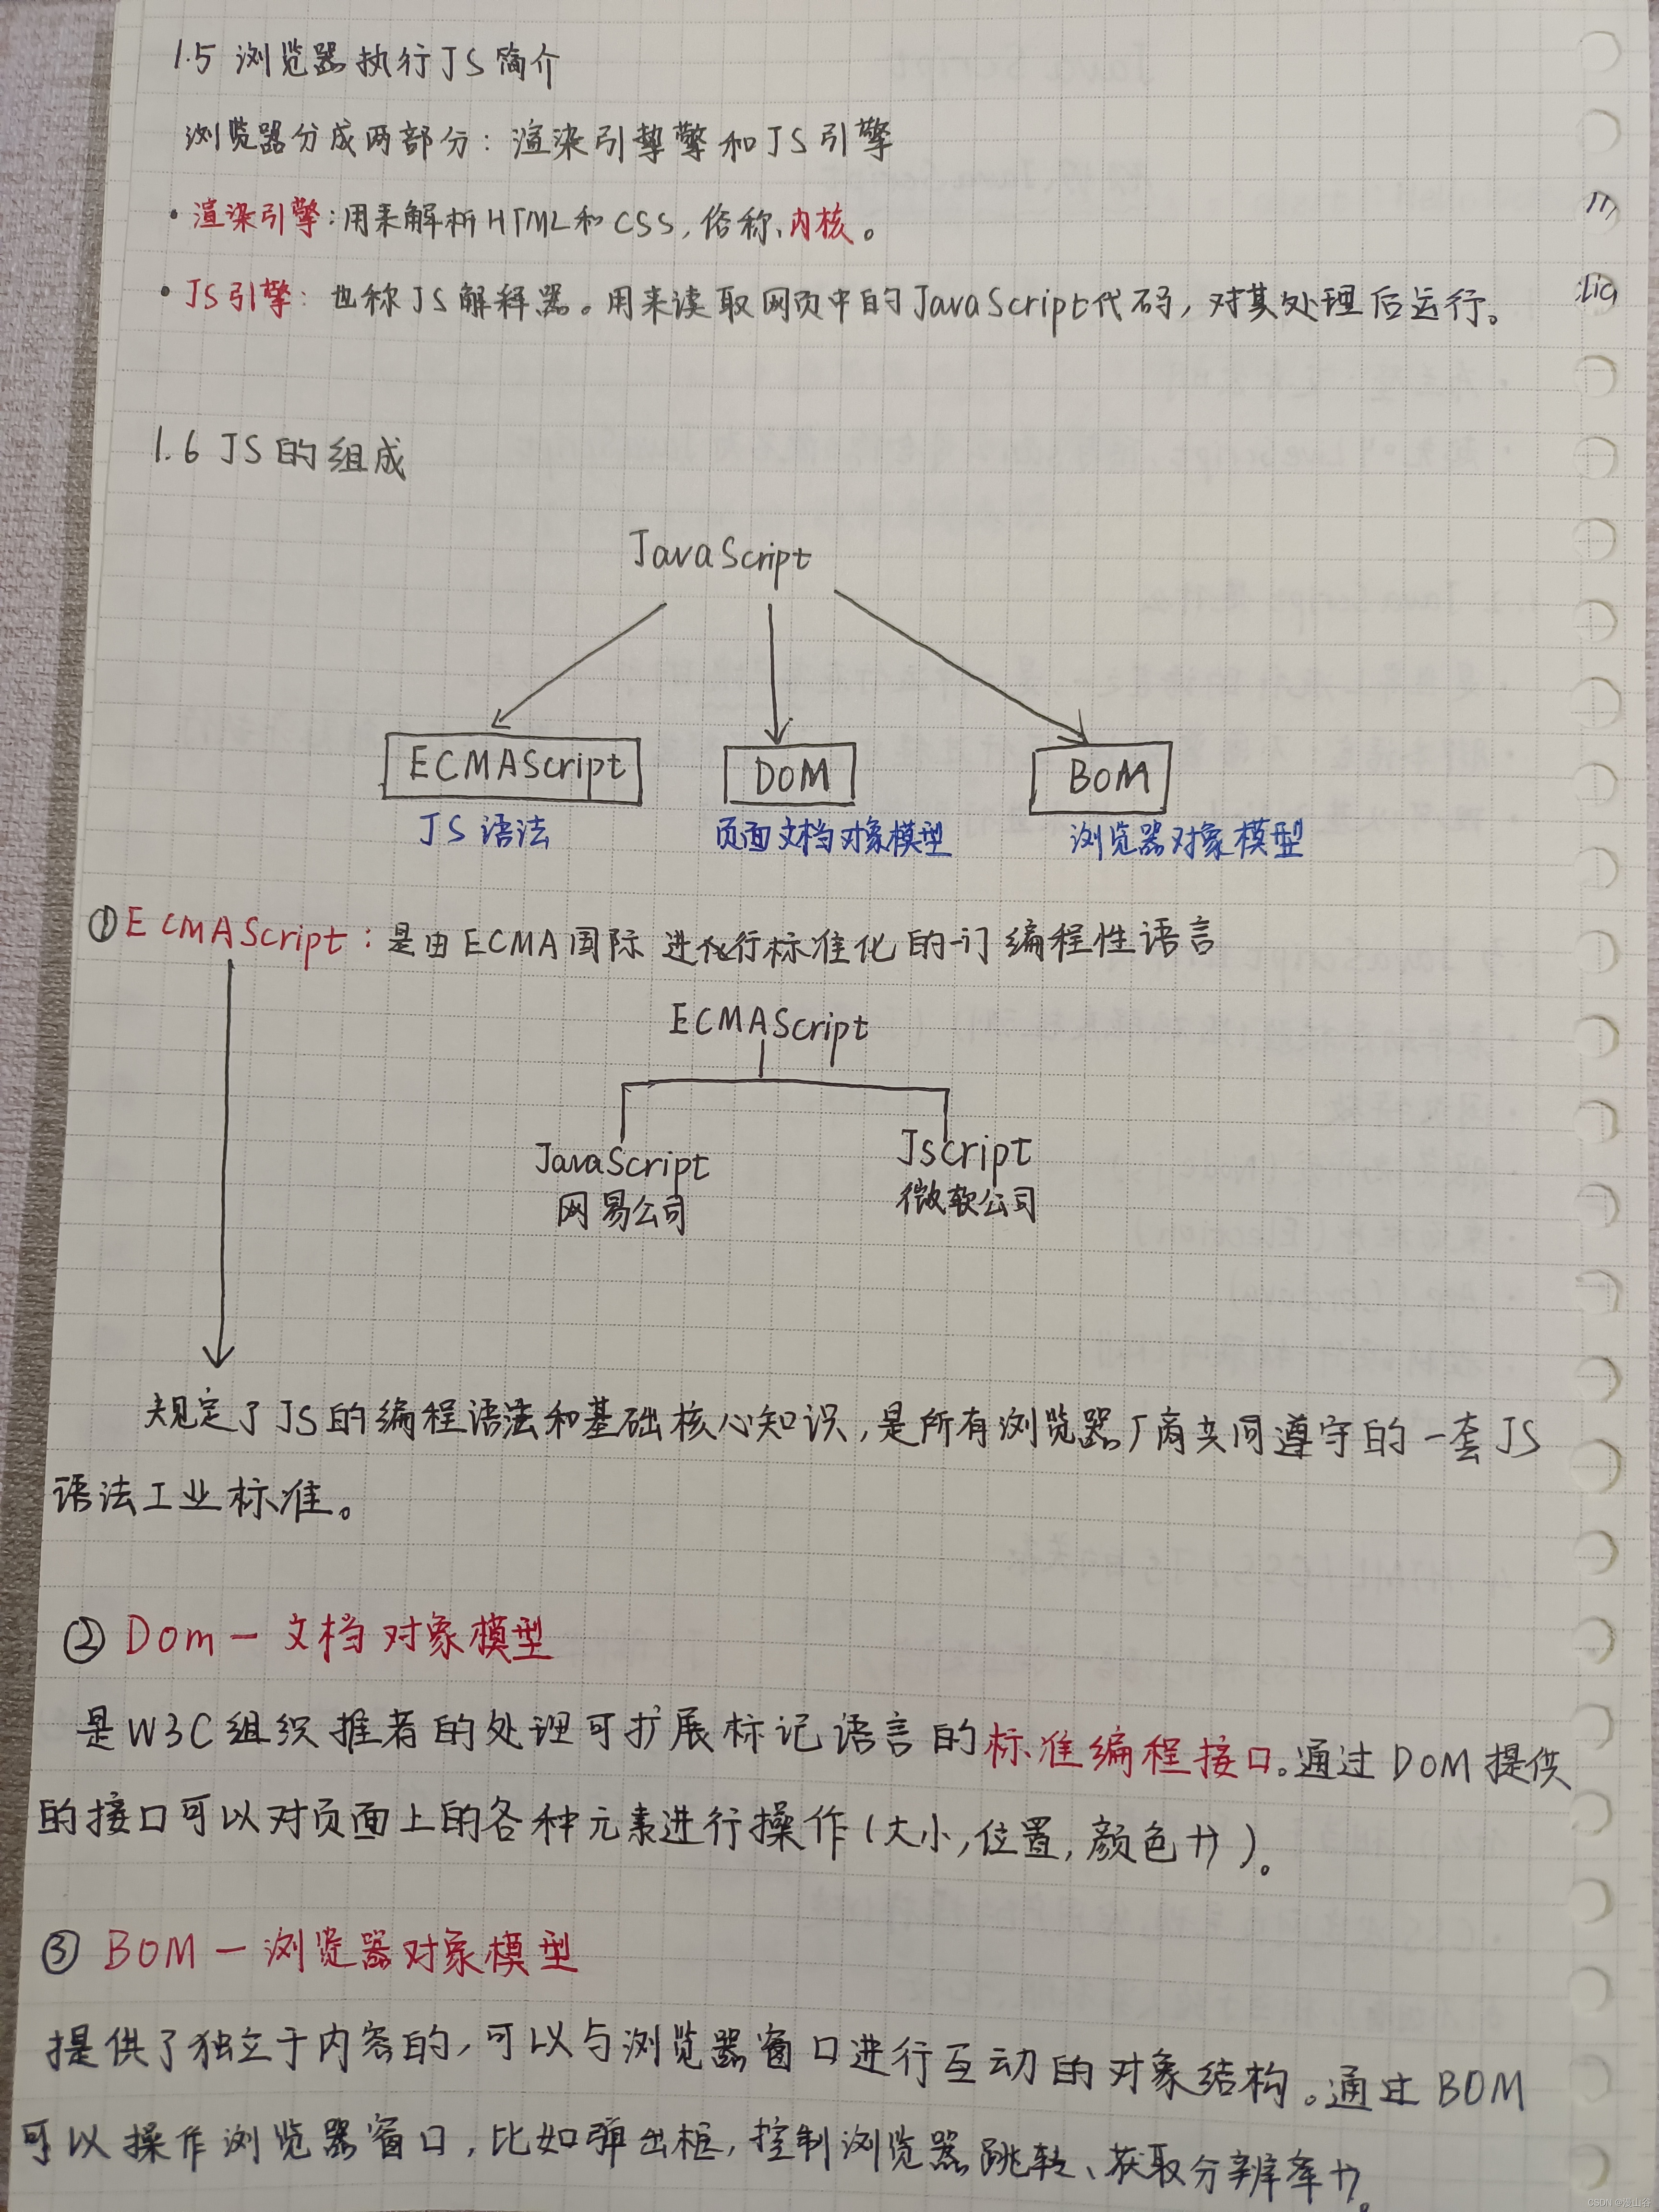 1.5 浏览器执行JS简介
浏览器分成两部分：渲染引擎和JS引擎
· 渲染引擎：用来解析HTML和CSS，俗称内核。
· JS引擎：也称JS解释器。用来读取网页中的JavaScript代码，对其处理后运行。
1.6 JS的组成
JavaScript
ECMAScript DOM BOM
JS语法 页面文档对象模型 浏览器对象模型
①ECMAScript：是由ECMA国际进行标准化的一门编程性语言
ECMAScript
JavaScript Jscript
网易公司 微软公司
规定了JS的编程语法和基础核心知识，是所有浏览器厂商共同遵守的一套JS
语法工业标准。
② Dom — 文档对象模型
是W3C组织推者的处理可扩展标记语言的标准编程接口。通过DOM提供
的接口可以对页面上的各种元素进行操作(大小,位置,颜色)。
③ BOM — 浏览器对象模型
提供了独立于内容的,可以与浏览器窗口进行互动的对象结构。通过BOM
可以操作浏览器窗口,比如弹出框,控制浏览器跳转、获取分辨率。
CSDN @漫山谷